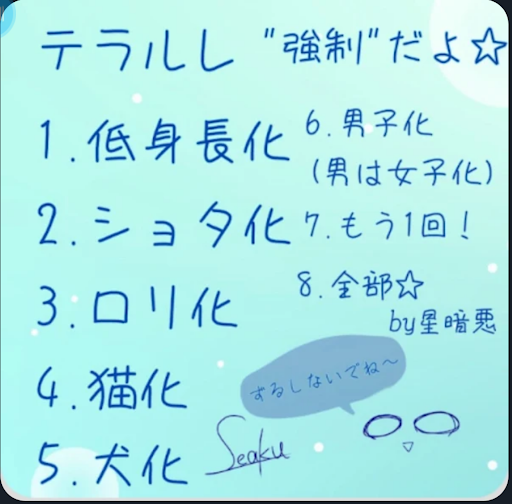 テラルし "強制"だよ☆
1.低身長化
2.ショタ化
3.ロリ化
4.猫化
5.犬化
6.男子化
(男は女子化)
7.もう1回!
8.全部☆
by星暗悪
ずるしないでね〜
Seaku